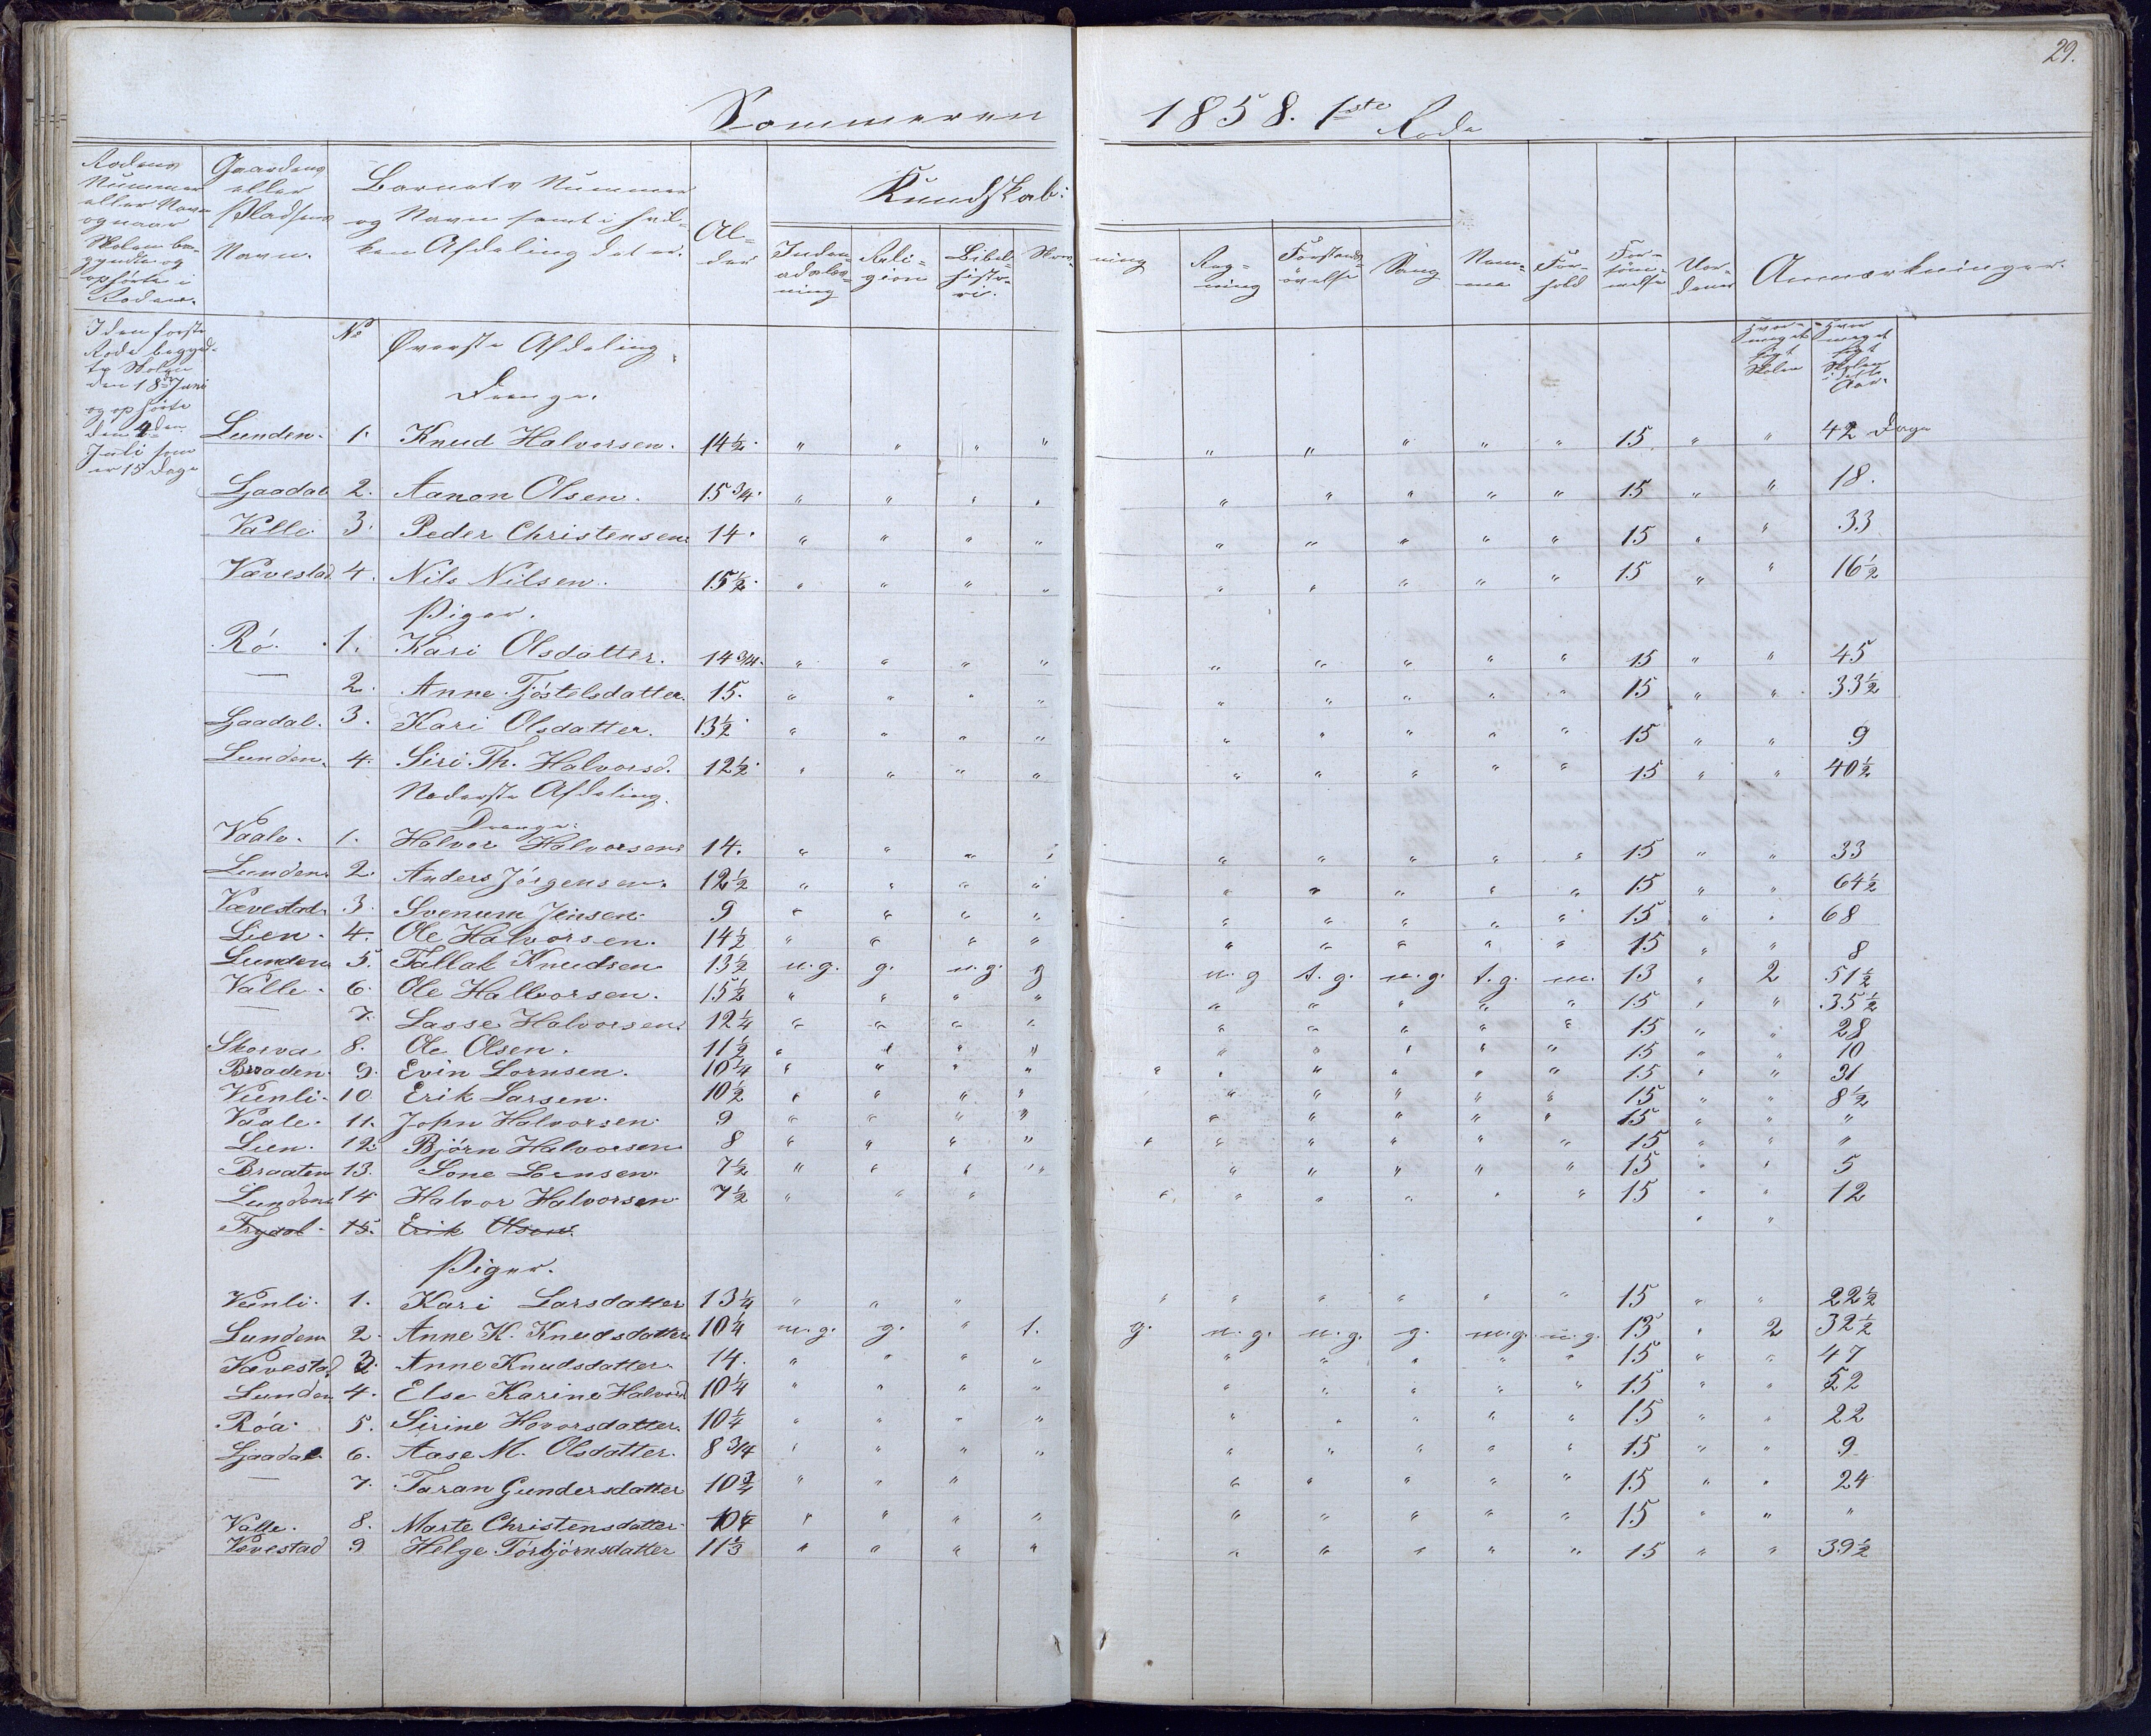 29.
Sommeren 1858. 1ste Rode
Rodens Nummer eller Navn og naar Skolen begyndte og ophørte i Roden.
Gaardens eller Pladsens Navn.
Barnets Nummer og Navn samt i hvilken Afdeling det er.
Alder
Kundskab:
Indenadslæsning
Religion
Bibelhistorie.
Skrivning
Regning
Forstandsøvelse
Sang
Nemme
Forhold
Forsømmelse
Anmærkninger.
I den første Rode begyndte Skolen den 18de Juni og ophørte den 4den Juli som er 15 Dage
No Øverste Afdeling.
Hvor meget søgt Skolen
Hvor meget søgt Skolen i dette Aar.
Drenge.
Lunden. 1. Knud Halvorsen. 14½. " " " " " " " " " 15 " " 42 Dage
Ljaadal 2. Aanon Olsen. 15 3/4. " " " " " " " " " 15 " " 18.
Valle 3. Peder Christensen. 14. " " " " " " " " " 15 " " 33
Vævestad 4. Nils Nilsen. 15½. " " " " " " " " " 15 " " 16½
Piger.
Rö. 1. Kari Olsdatter. 14 3/4. " " " " " " " " " 15 " " 45
— 2. Anne Tjöstelsdatter. 15. " " " " " " " " " 15 " " 33½
Ljaadal. 3. Kari Olsdatter. 13½ " " " " " " " " " 15 " " 9
Lunden. 4. Siri Th. Halvorsd. 12½. " " " " " " " " " 15 " " 40½
Nederste Afdeling.
Drenge.
Vaale. 1. Halvor Halvorsen. 14. " " " " " " " " " 15 " " 33
Lunden. 2. Anders Jörgensen. 12½ " " " " " " " " " 15 " " 64½
Vævestad. 3. Svenum Jensen. 9 " " " " " " " " " 15 " " 68
Lien. 4. Ole Halvorsen. 14½ " " " " " " " " " 15 " " 8
Lunden 5. Tallak Knudsen 13½ m.g. g. m.g. g m.g t.g. m.g. t.g. m. 13 " 2 51½
Valle. 6. Ole Hallvorsen. 15½ " " " " " " " " " 15 " " 35½
— 7. Lasse Halvorsen. 12¼ " " " " " " " " " 15 " " 28
Skorva 8. Ole Olsen. 11½ " " " " " " " " " 15 " " 10
Braaden. 9. Evin Lornsen. 10¼ " " " " " " " " " " 15 " " 31
Vienli. 10. Erik Larsen. 10½ " " " " " " " " " 15 " " 8½
Vaale. 11. John Halvorsen. 9 " " " " " " " " " 15 " " "
Lien. 12. Bjørn Halvorsen 8 " " " " " " " " " " 15 " " "
Braaten 13. Lone Lornsen. 7½ " " " " " " " " " 15 " " 5
Lunden. 14. Halvor Halvorsen. 7½ " " " " " " " " " 15 " " 12
Trydal. 15. Erik Olsen. " "
Piger.
Venli. 1. Kari Larsdatter 13¼ " " " " " " " " " 15 " " 22½
Lunden 2. Anne K. Knudsdatter. 10¼ m.g. g. " t. g. m.g. m.g. g. m.g. m.g. 13 " 2 32½
Vævestad. 3. Anne Knudsdatter. 14. " " " " " " " " " 15 " " 47
Lunden 4. Else Karine Halvord 10¼ " " " " " " " " " 15 " " 52
Röa. 5. Sirine Hovorsdatter. 10¼ " " " " " " " " " 15 " " 22
Ljaadal 6. Aase M. Olsdatter. 8 3/4 " " " " " " " " " 15 " " 9
— 7. Taran Gundersdatter 10¾ " " " " " " " " 15 " " 24
Valle. 8. Marte Christensdatter. 10¼ " " " " " " " " " 15 " " "
Vævestad 9 Helge Törbjörnsdatter 11⅓ " " " " " " " " " 15 " " 39½